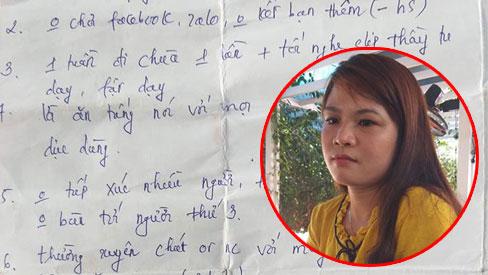 2. o chơi facebook, zalo, o kết bạn thêm (- hs)
3. 1 tuần đi chùa 1 lần + tối nghe clip thầy tu
dạy, Phật dạy
lời ăn tiếng nói với mọi
dịu dàng.
5. o tiếp xúc nhiều người,
o bàn tới người thứ 3.
6. thường xuyên chat or nc với